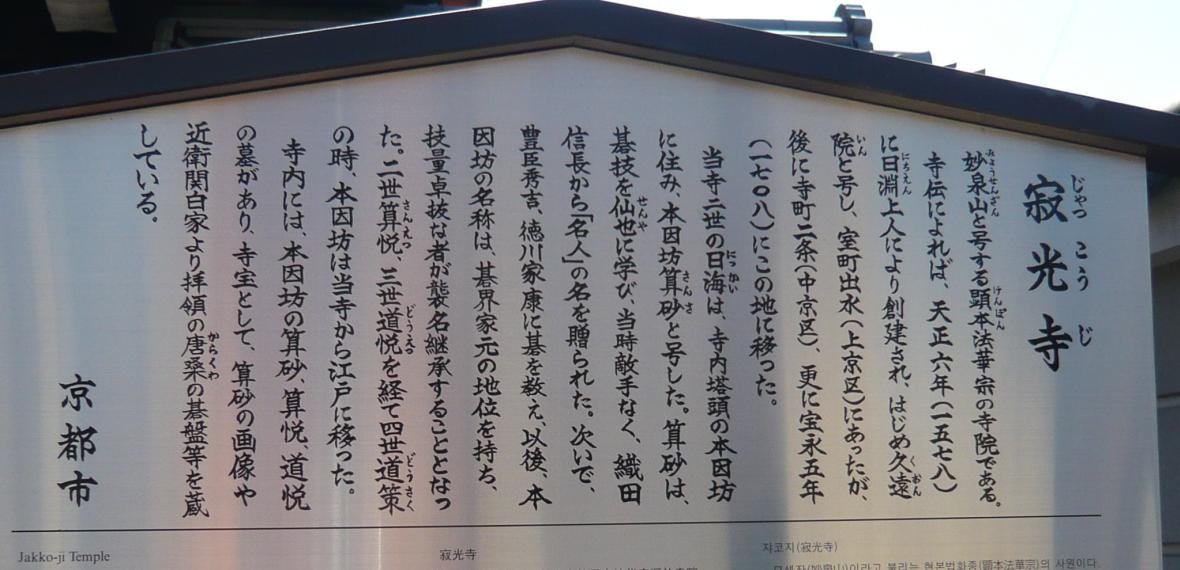 寂光寺
妙泉山と号する顕本法華宗の寺院である。
寺伝によれば、天正六年(一五七八)
に日淵上人により創建され、はじめ久遠
院と号し、室町出水(上京区)にあったが、
後に寺町二条(中京区)、更に宝永五年
(一七〇八)にこの地に移った。
当寺二世の日海は、寺内塔頭の本因坊
に住み、本因坊算砂と号した。算砂は、
碁技を仙也に学び、当時敵手なく、織田
信長から「名人」の名を贈られた。次いで、
豊臣秀吉、徳川家康に碁を教え、以後、本
因坊の名称は、碁界家元の地位を持ち、
技量卓抜な者が襲名継承することとなっ
た。二世算悦、三世道悦を経て四世道策
の時、本因坊は当寺から江戸に移った。
寺内には、本因坊の算砂、算悦、道悦
の墓があり、寺宝として、算砂の画像や
近衛関白家より拝領の唐桑の碁盤等を蔵
している。
京都市
Jakko-ji Temple
寂光寺
쟈코지(寂光寺)
이라고 불리는 현본법화종(顕本法華宗)의 사원이다.